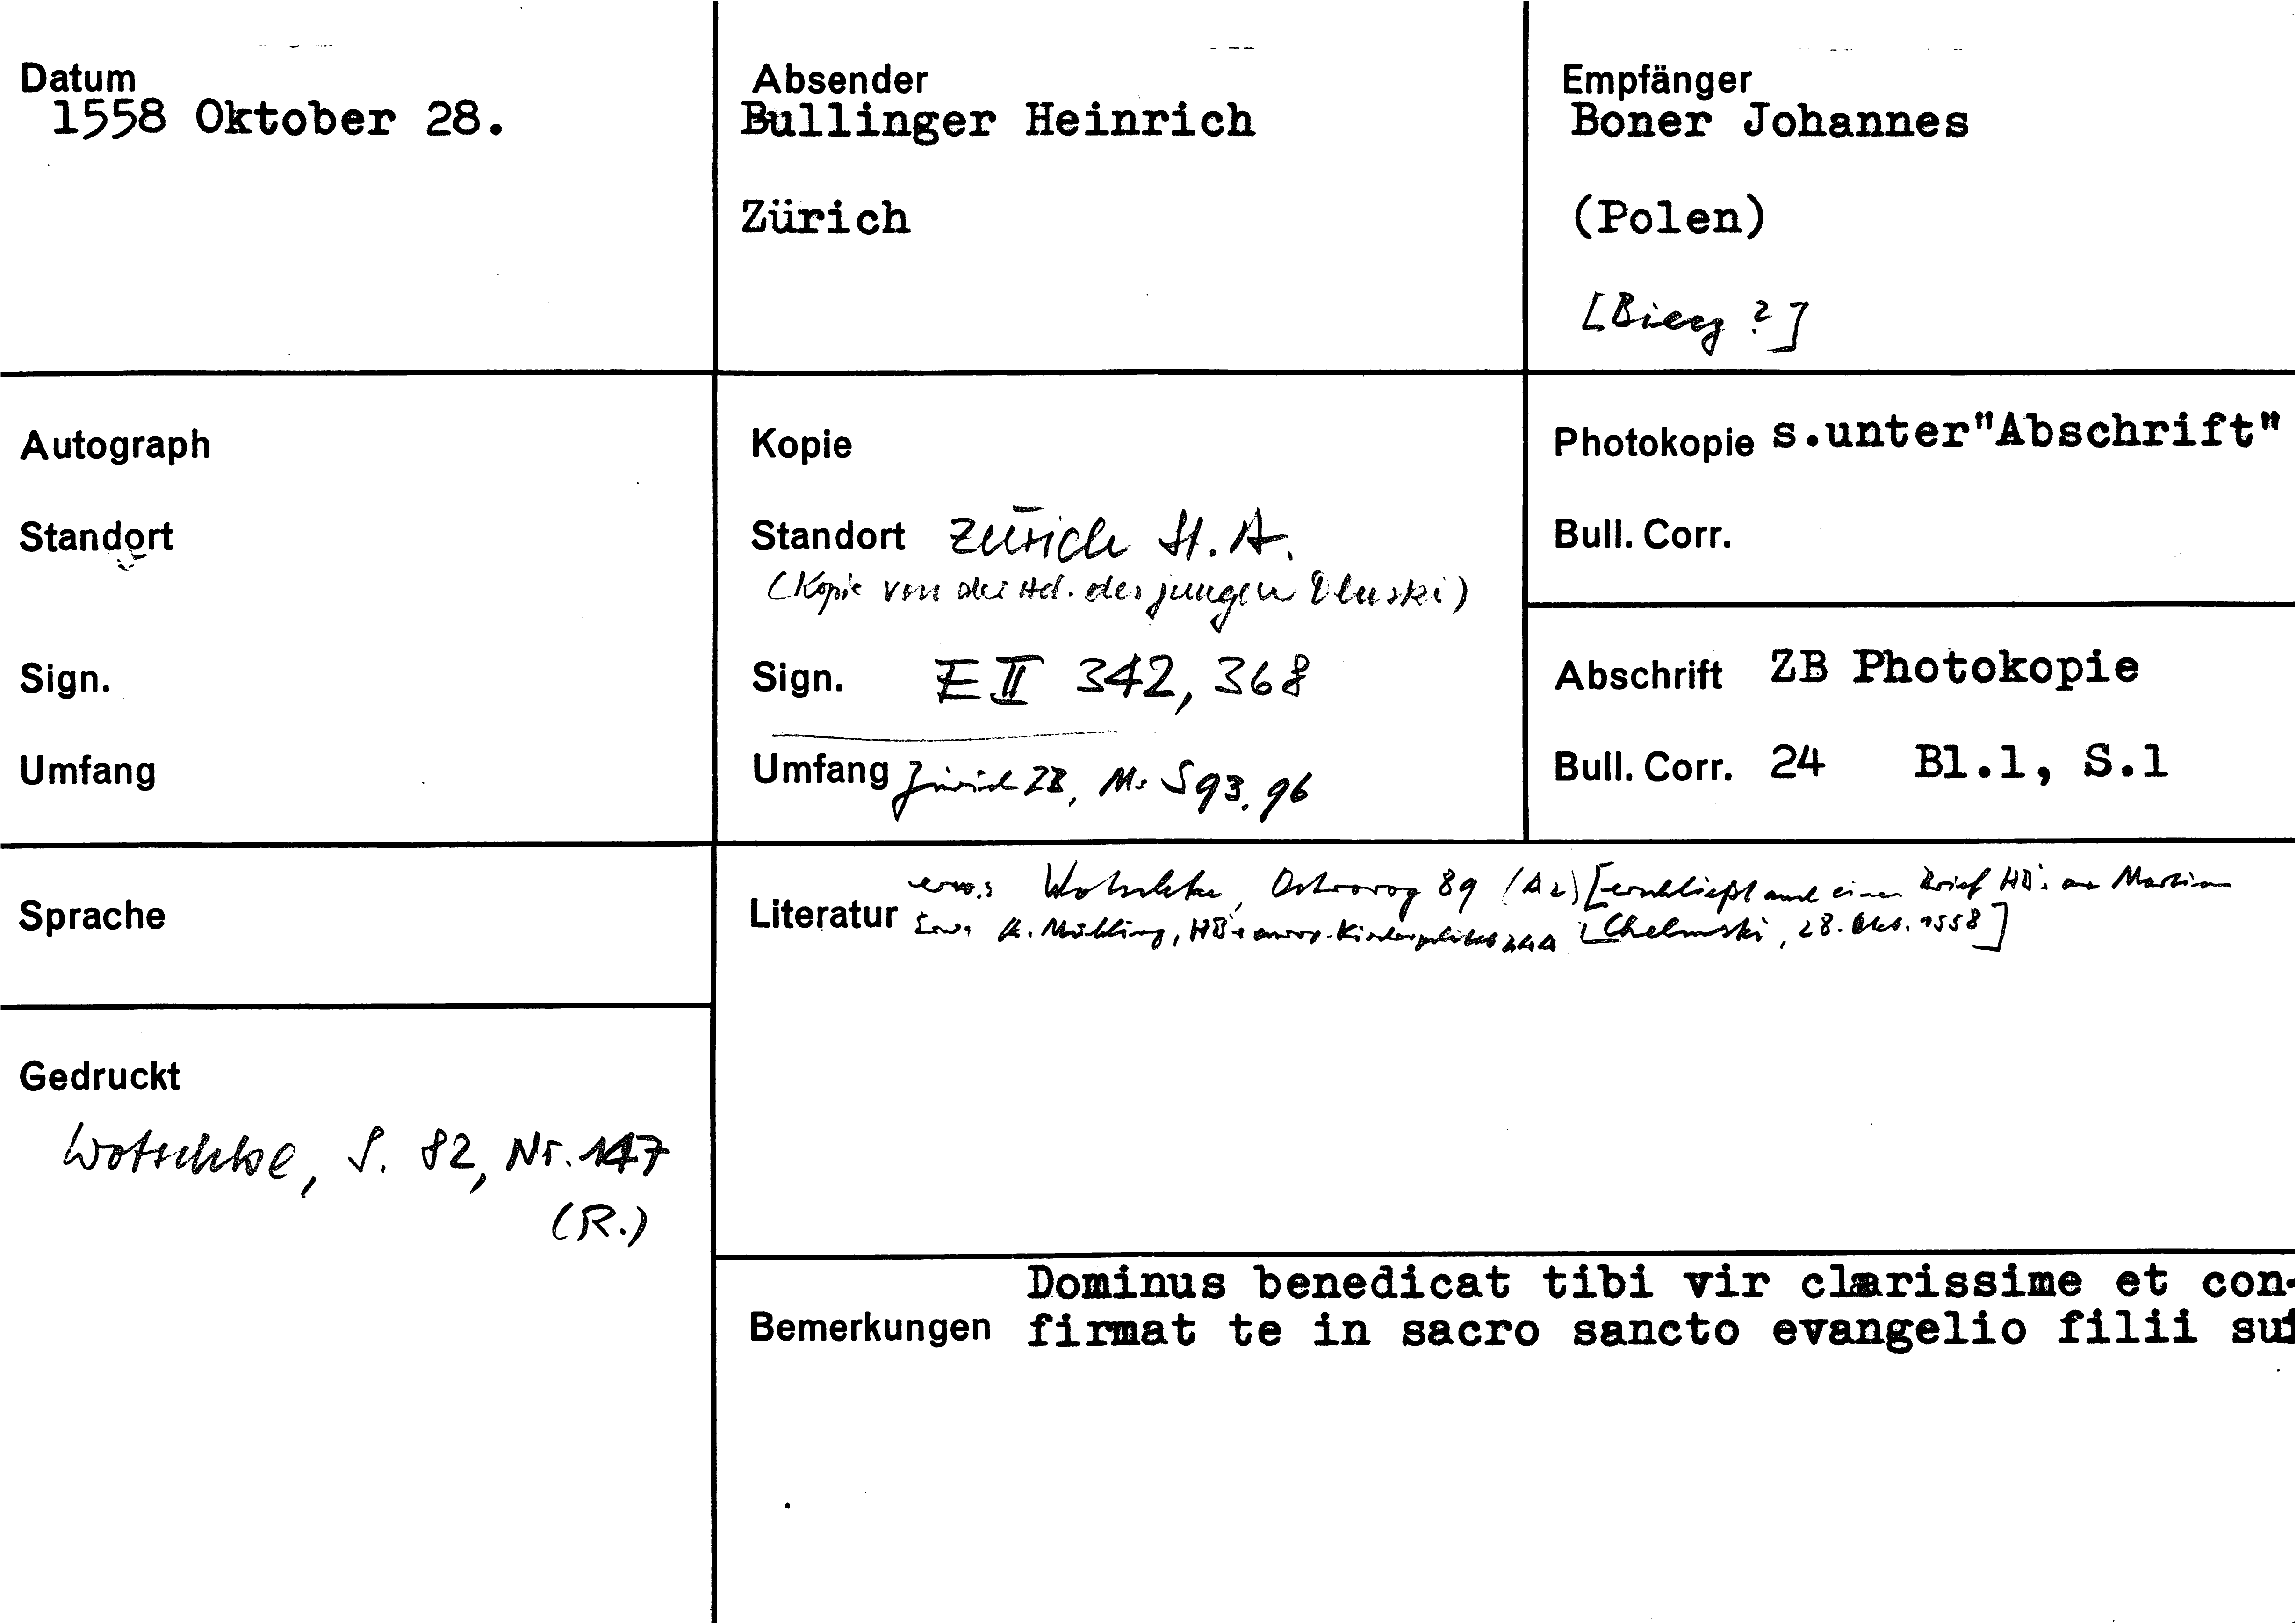 Datum
1558 Oktober 28.
Absender
Bullinger Heinrich
Zürich
Empfänger
Boner Johannes
(Polen)
[Biecz ?]
Autograph
Standort
Sign.
Umfang
Kopie
Standort Zürich St.A.
(Kopie von der Hd. des jungen Dluski)
Sign. E II 342, 368
Umfang Zürich ZB, Ms S 93, 96
Photokopie s.unter"Abschrift"
Bull. Corr.
Abschrift ZB Photokopie
Bull. Corr. 24 Bl.1, S.1
Sprache
Literatur erw.: Wotschke, Ostrorog 89 (A2) [erschließt auch einen Brief HB's an Martin
Erw. A. Mühling, HB's europ. Kirchenpolitik 244 Chelmski, 28. Okt. 1558]
Gedruckt
Wotschke, S. 82, Nr. 147
(R.)
Bemerkungen
Dominus benedicat tibi vir clarissime et con-
firmat te in sacro sancto evangelio filii sui